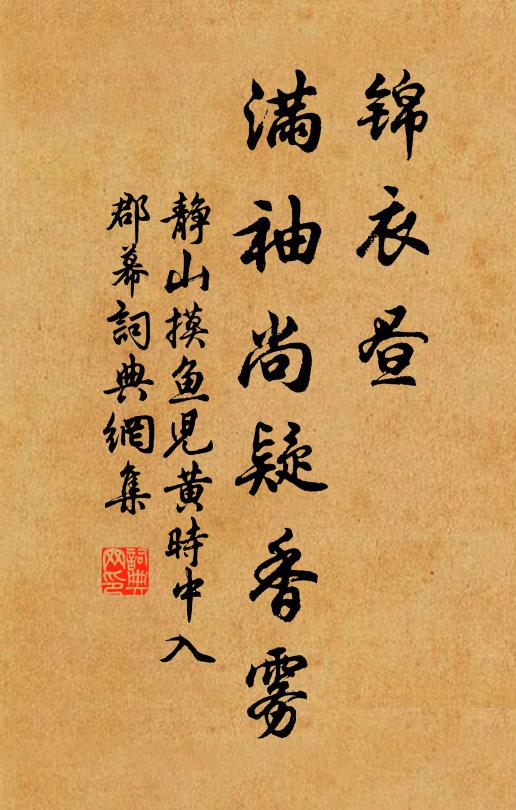 锦衣昼
满袖尚疑香雾
静山摸鱼儿黄时中入
郡幕詞典網集
詞典网印